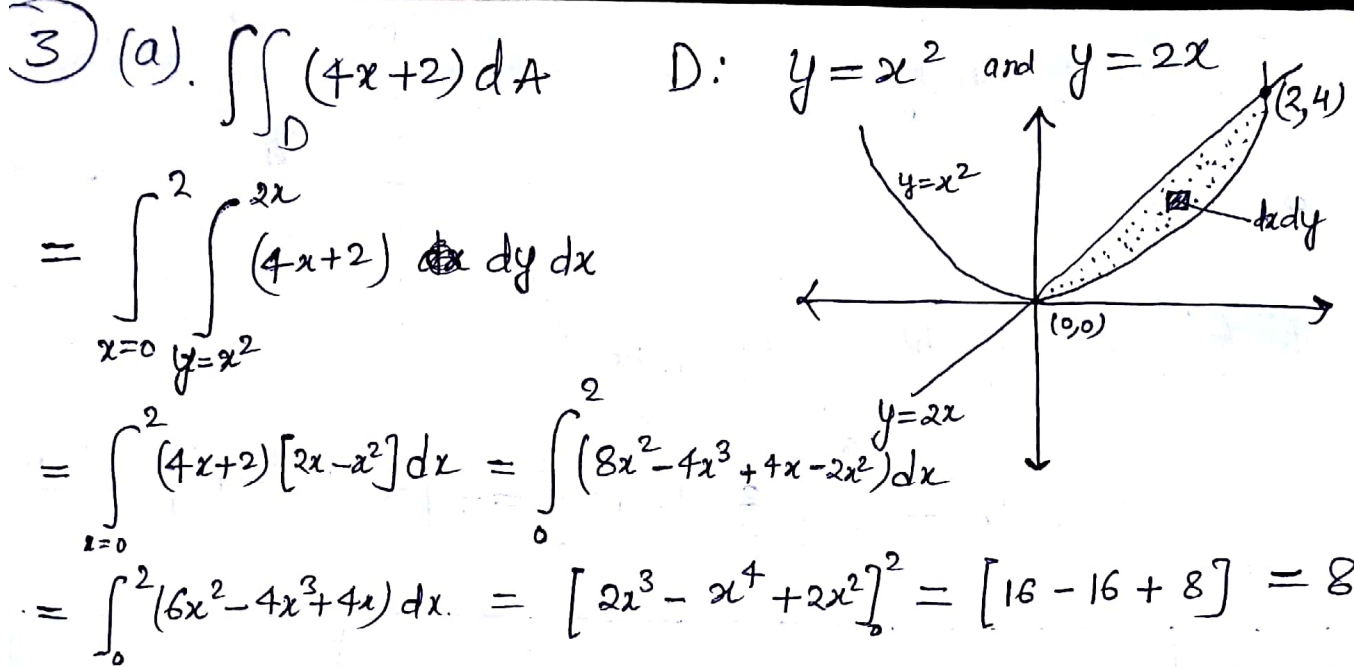 ③ (a). ∬_D (4x+2) dA D: y = x² and y = 2x
(2,4)
y=x²
dxdy
= ∫_{x=0}^{2} ∫_{y=x²}^{2x} (4x+2) dy dx
(0,0)
y=2x
= ∫_{x=0}^{2} (4x+2) [2x-x²] dx = ∫_{0}^{2} (8x² - 4x³ + 4x - 2x²) dx
= ∫_{0}^{2} (6x² - 4x³ + 4x) dx. = [2x³ - x⁴ + 2x²]_{0}^{2} = [16 - 16 + 8] = 8